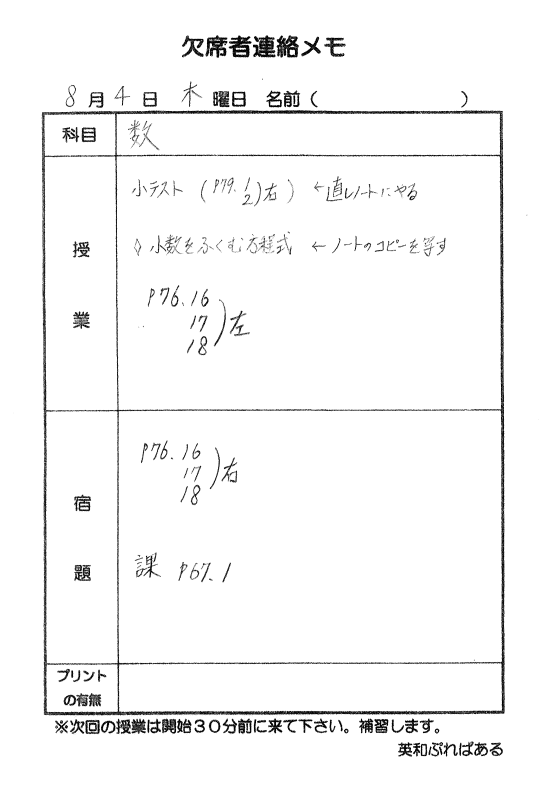 欠席者連絡メモ
8月4日 木曜日 名前（　　　　　　）
科目 数
授業
小テスト (P79. 1 2)右) ←直しノートにやる
◊ 小数をふくむ方程式 ←ノートのコピーを写す
P76. 16
17
18)左
宿題
P76. 16
17
18)右
課 P67. 1
プリントの有無
※次回の授業は開始30分前に来て下さい。補習します。
英和ぷれぱある